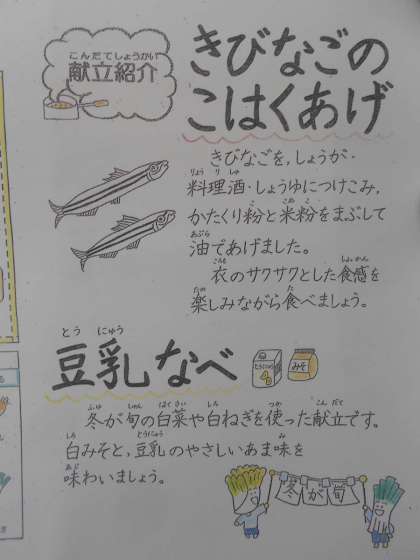 こんだてしょうかい
献立紹介
きびなごの
こはくあげ
きびなごを、しょうが・
料理酒・しょうゆにつけこみ、
かたくり粉と米粉をまぶして
油であげました。
衣のサクサクとした食感を
楽しみながら食べましょう。
とう にゅう
豆乳なべ
とうにゅう
みそ
冬が旬の白菜や白ねぎを使った献立です。
白みそと、豆乳のやさしいあま味を
味わいましょう。
冬が旬